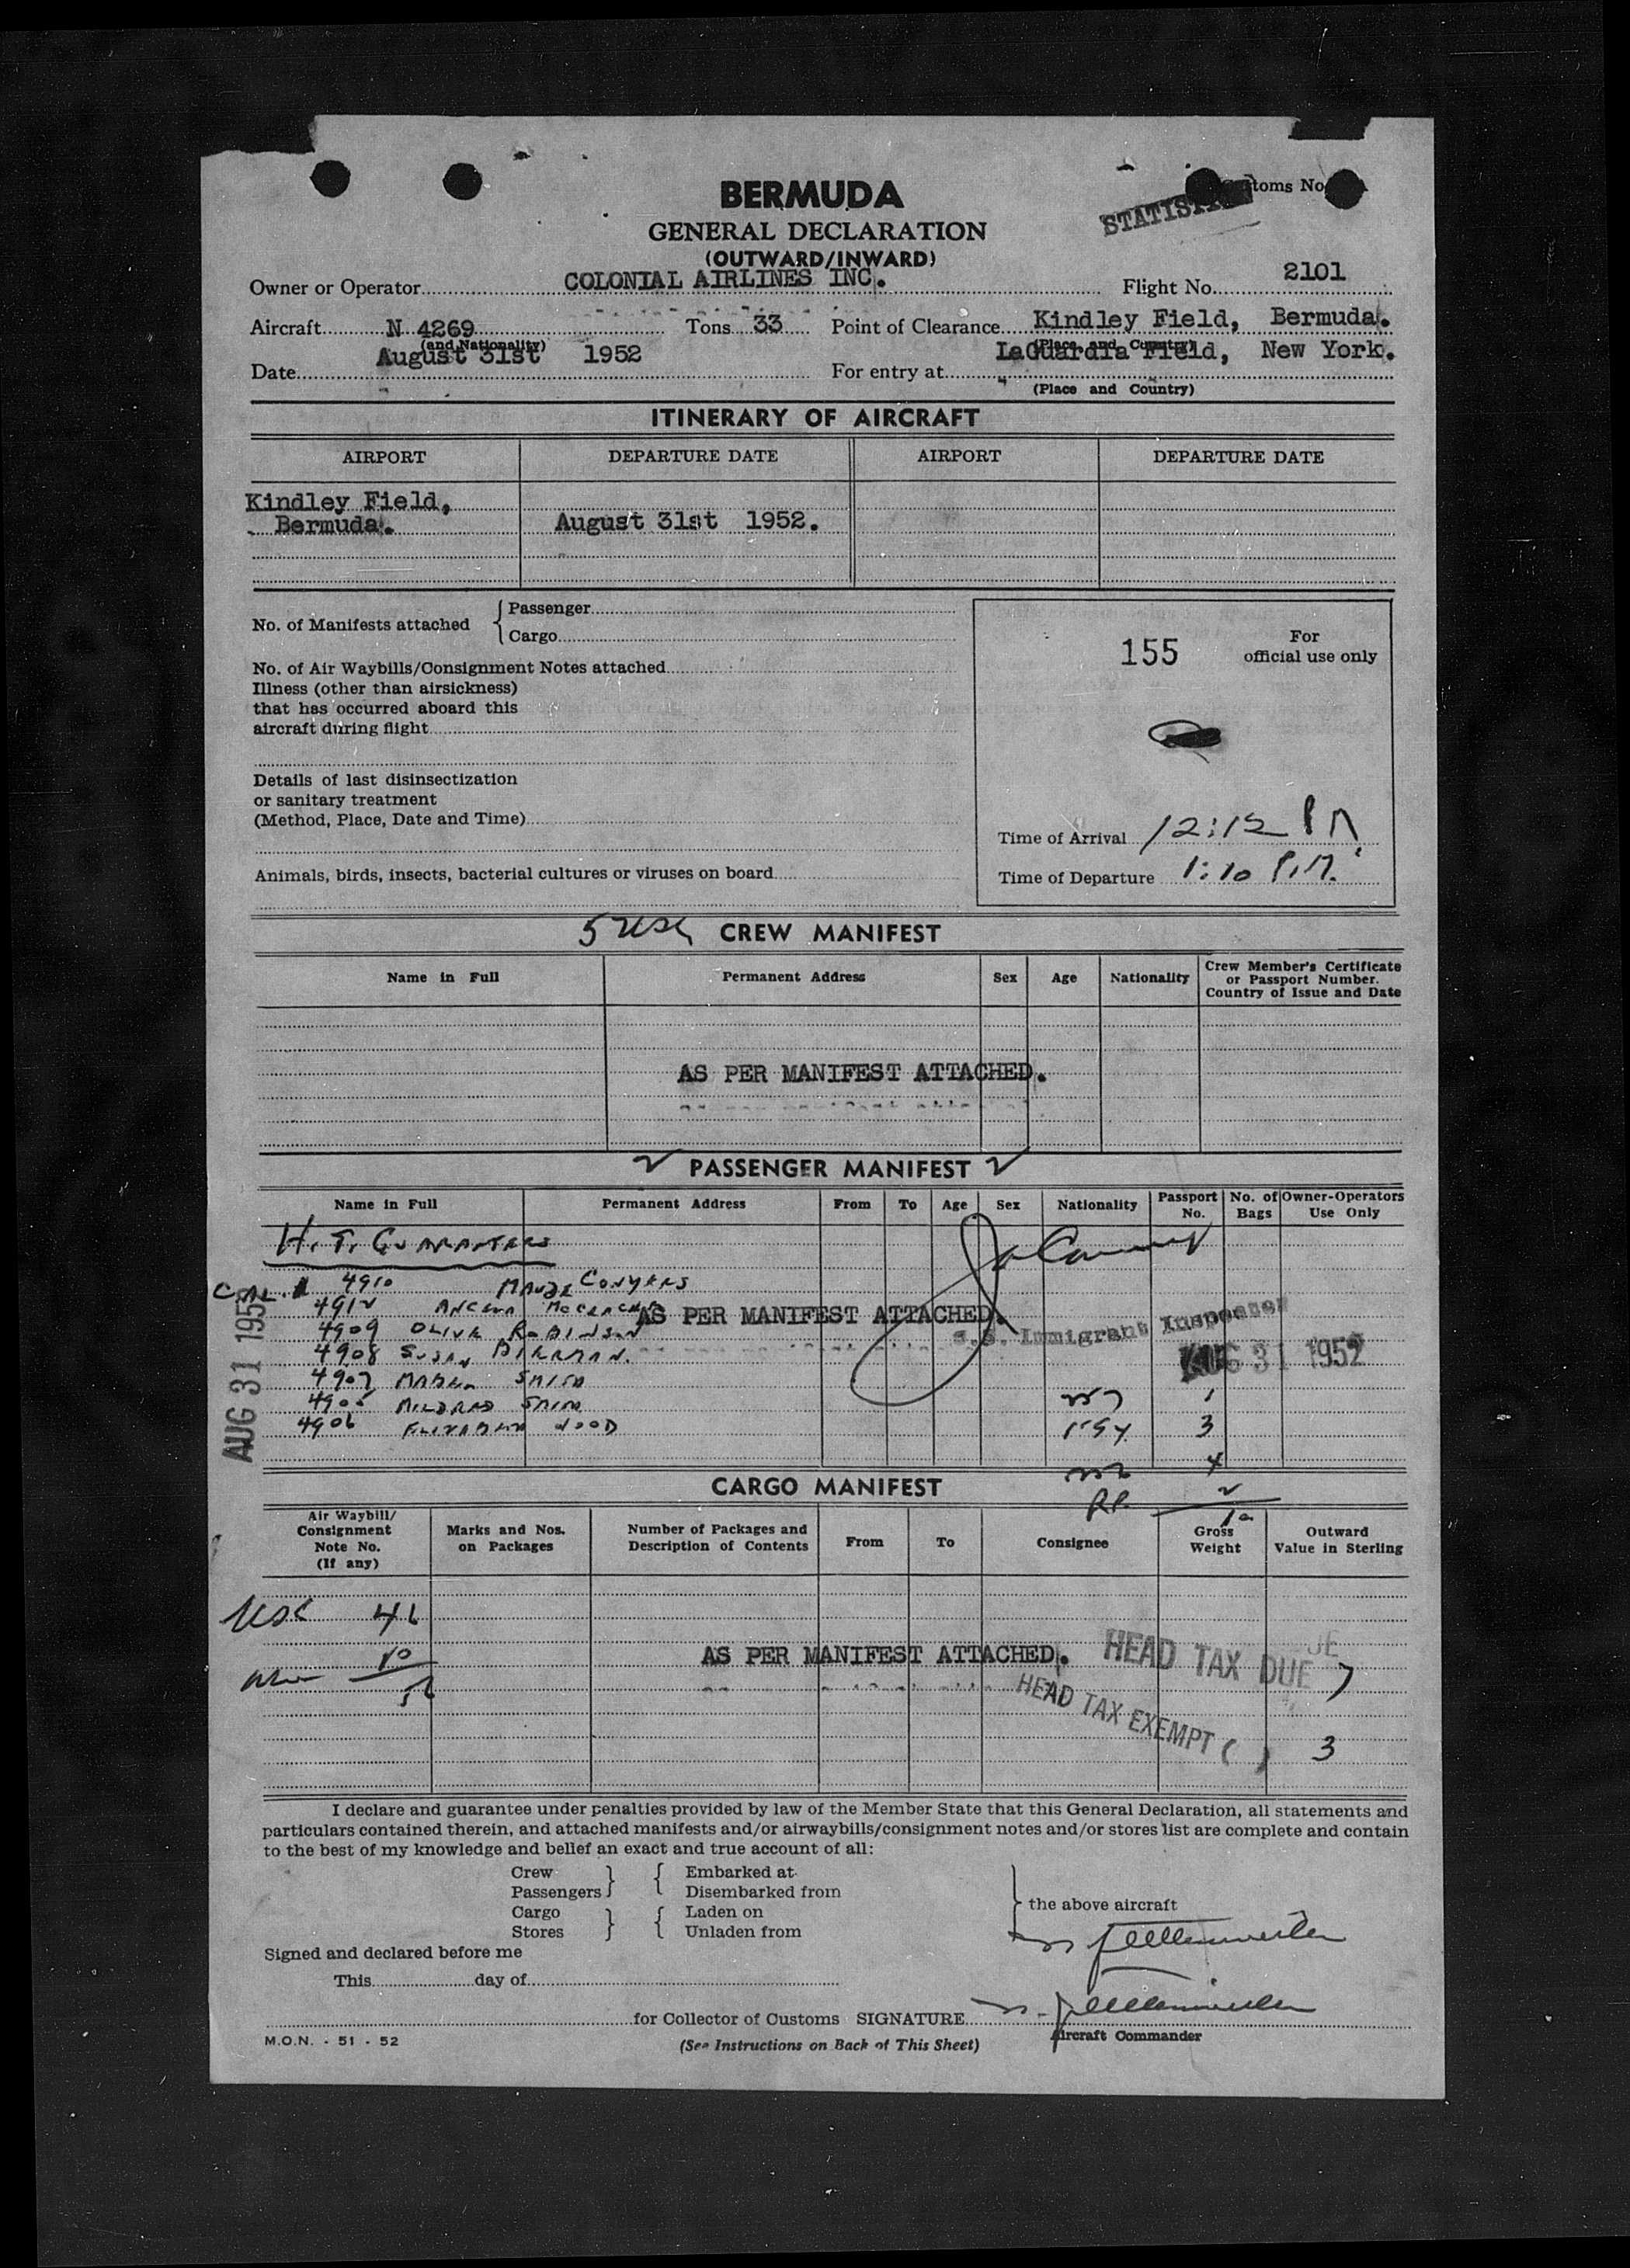 BERMUDA
Customs No.
STATIST
GENERAL DECLARATION
(OUTWARD/INWARD)
Owner or Operator COLONIAL AIRLINES INC. Flight No. 2101
Aircraft N 4269 Tons 33 Point of Clearance Kindley Field, Bermuda.
(and Nationality) (Place and Country)
Date August 31st 1952 For entry at LaGuardia Field, New York.
(Place and Country)
ITINERARY OF AIRCRAFT
AIRPORT DEPARTURE DATE AIRPORT DEPARTURE DATE
Kindley Field,
Bermuda. August 31st 1952.
No. of Manifests attached { Passenger
Cargo
155 For
official use only
No. of Air Waybills/Consignment Notes attached
Illness (other than airsickness)
that has occurred aboard this
aircraft during flight
Details of last disinsectization
or sanitary treatment
(Method, Place, Date and Time)
Time of Arrival 12:12 PM
Animals, birds, insects, bacterial cultures or viruses on board
Time of Departure 1:10 P.M.
5 USC CREW MANIFEST
Name in Full Permanent Address Sex Age Nationality Crew Member's Certificate
or Passport Number.
Country of Issue and Date
AS PER MANIFEST ATTACHED.
PASSENGER MANIFEST
Name in Full Permanent Address From To Age Sex Nationality Passport No. No. of Bags Owner-Operators Use Only
H. T. GUARANTEES
CAL. 4910 MAUDE CONYERS
4912
AS PER MANIFEST ATTACHED.
4909 OLIVE ROBINSON
Immigrant Inspector
4908 SUSAN
AUG 31 1952
4907 MABEL SMITH
4905 MILDRED SMITH
1
4906 ELIZABETH WOOD
3
AUG 31 1952
4
2
RP.
10
CARGO MANIFEST
Air Waybill/
Consignment
Note No.
(If any)
Marks and Nos.
on Packages
Number of Packages and
Description of Contents
From To Consignee Gross
Weight
Outward
Value in Sterling
USC 46
10
56
AS PER MANIFEST ATTACHED.
HEAD TAX DUE 7
HEAD TAX EXEMPT ( ) 3
I declare and guarantee under penalties provided by law of the Member State that this General Declaration, all statements and
particulars contained therein, and attached manifests and/or airwaybills/consignment notes and/or stores list are complete and contain
to the best of my knowledge and belief an exact and true account of all:
Crew } { Embarked at
Passengers Disembarked from
the above aircraft
Cargo } { Laden on
Stores Unladen from
Signed and declared before me
This day of
for Collector of Customs SIGNATURE
Aircraft Commander
M.O.N. - 51 - 52
(See Instructions on Back of This Sheet)